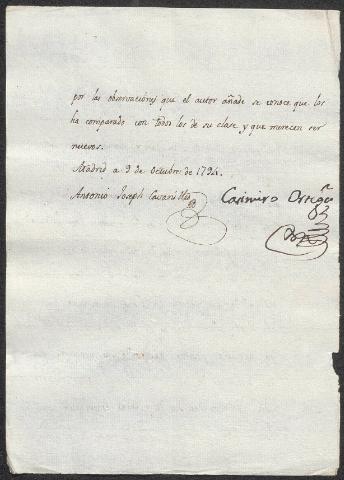 por las observaciones que el autor añade se conoce que los
ha comparado con todos los de su clase, y que merecen ser
nuevos.
Madrid a 9 de Octubre de 1794.
Antonio Joseph Cavanilles Casimiro Ortega